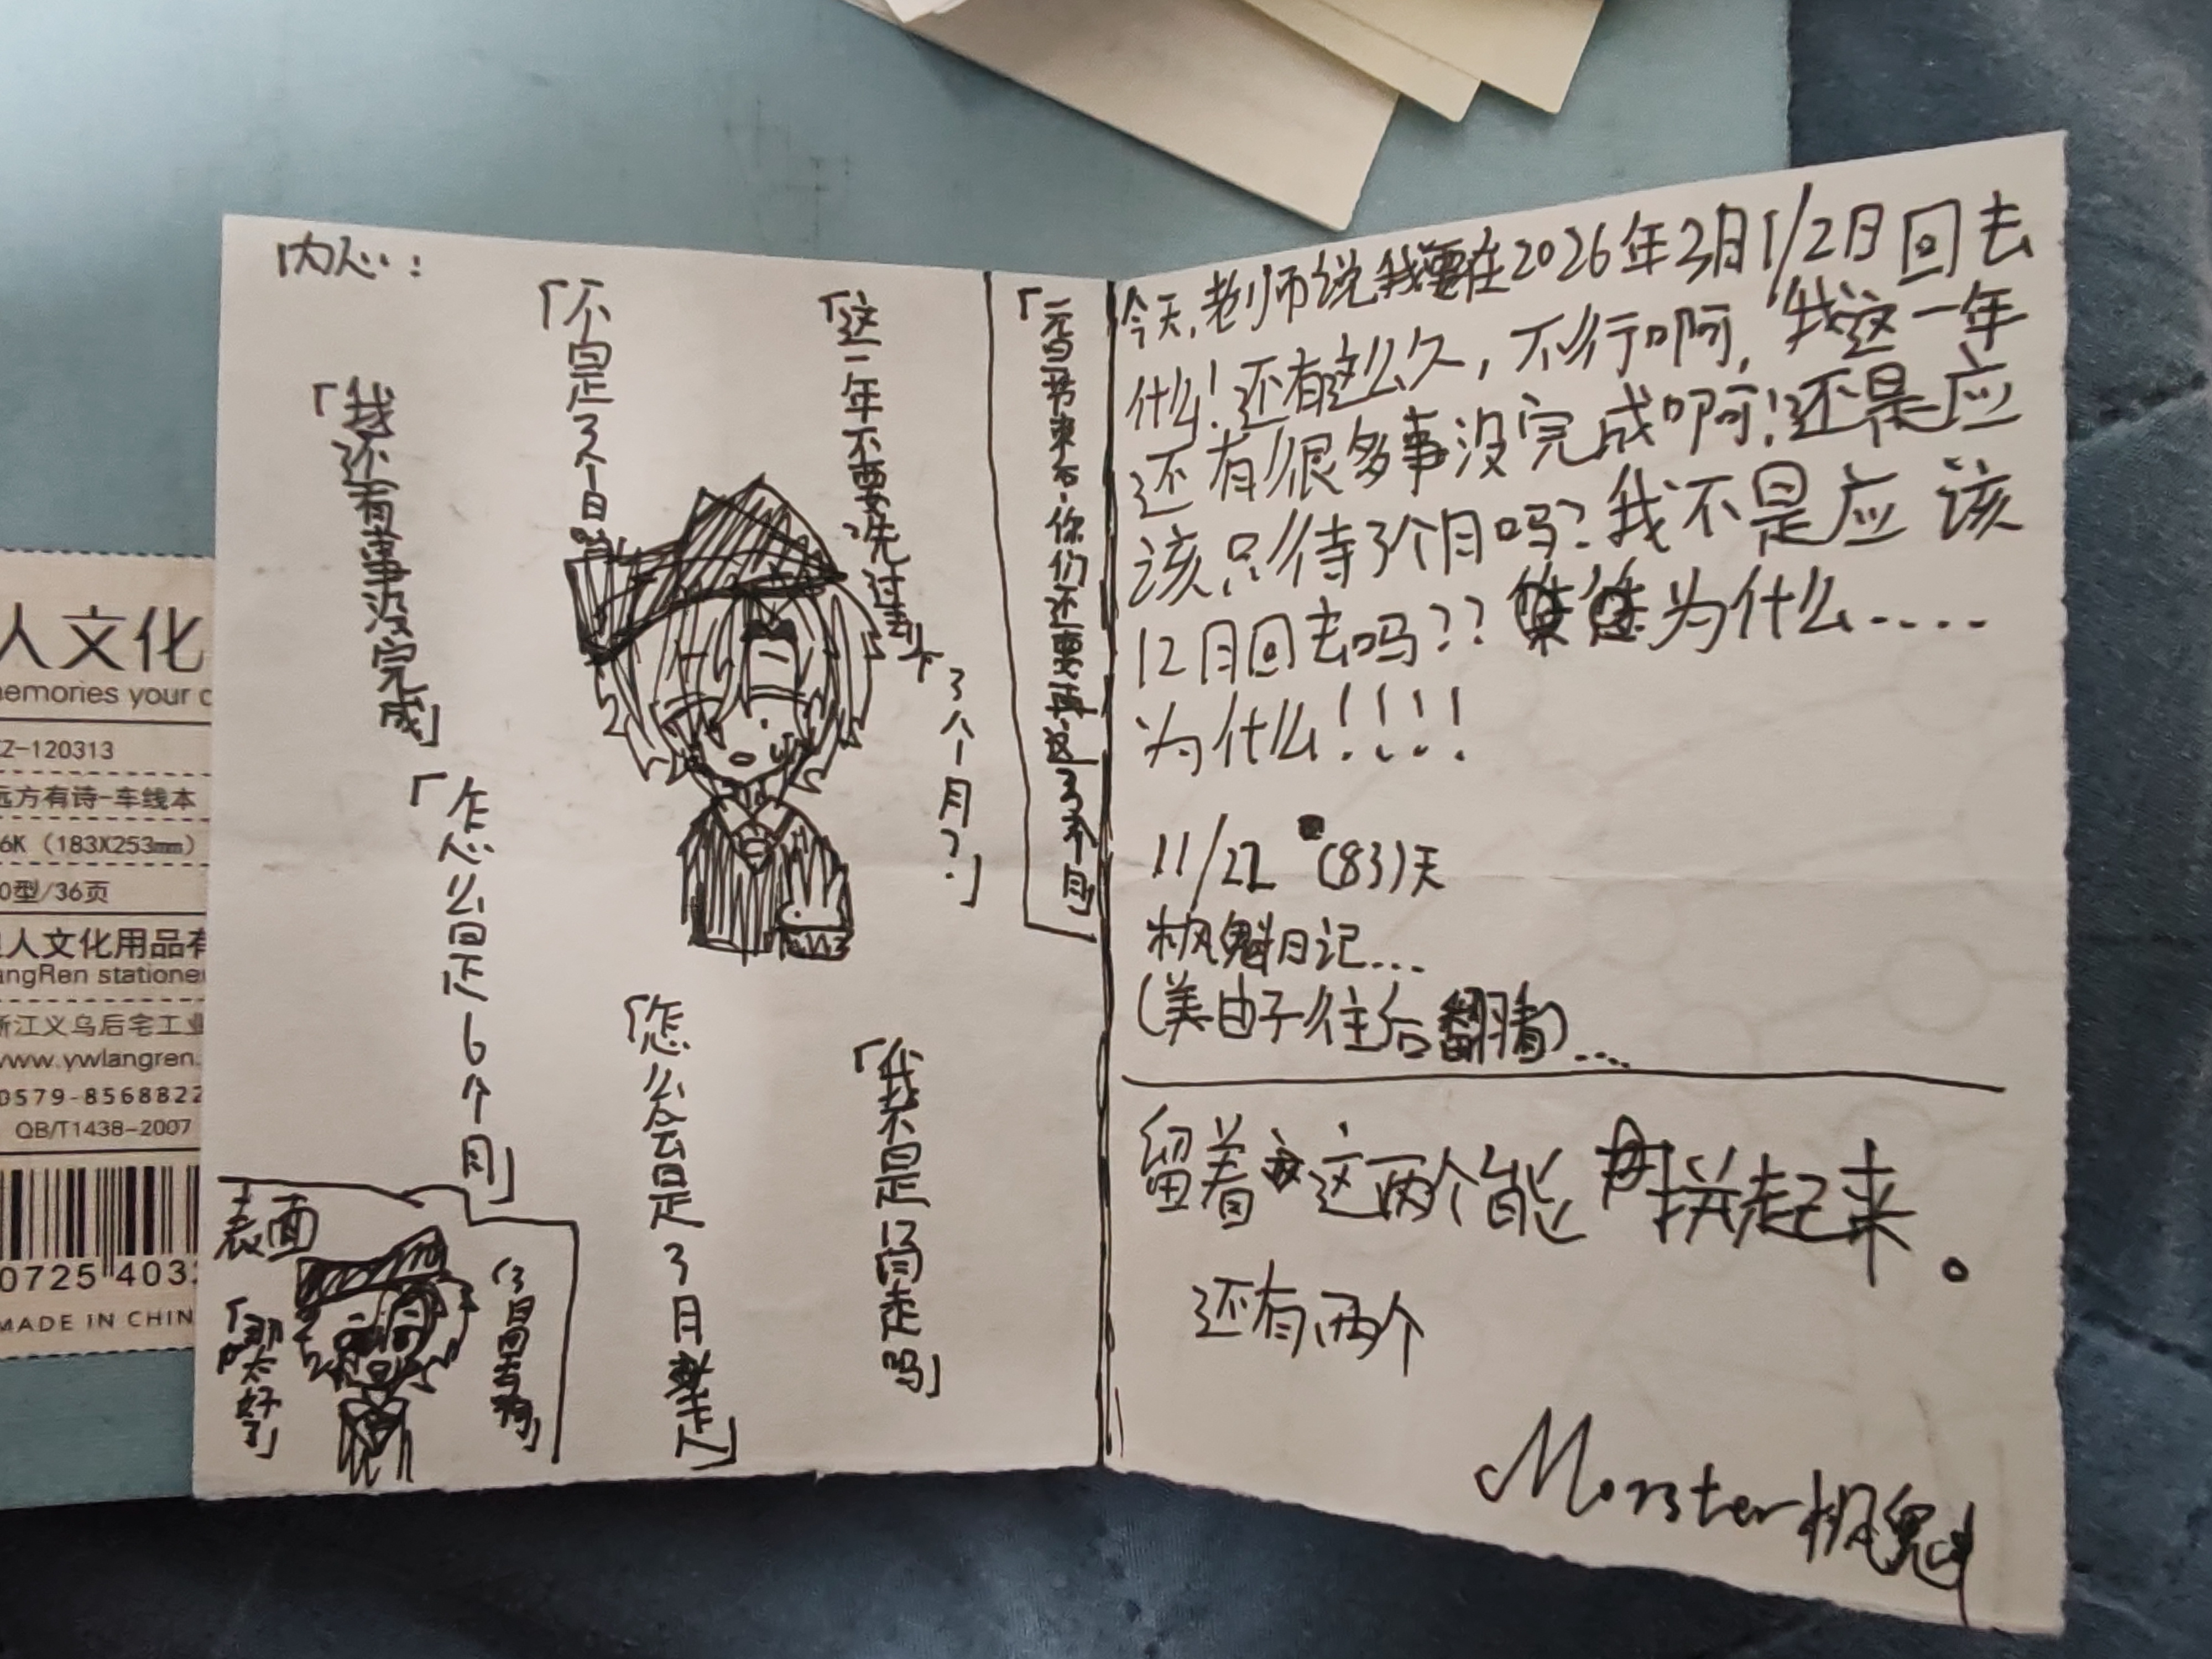 内心：
「这一年不要先过去
3个月？」
「不是3个月
「我还有事没完成」
「怎么回是6个月」
「怎么会是3月
「我不是12月走吗」
表面
「那太好了」
你们还要再
3个月
今天，老师说我要在2026年3月1/2日回去
什么！还有这么久，不行啊，我这一年
还有很多事没完成啊！还是应
该只待3个月吗？我不是应该
12月回去吗？？为什么....
为什么！！！！
11/22 (83)天
枫魁日记...
(美由子往后翻看)....
留着这两个能拼起来。
还有两个
Monster枫魁
人文化
memories your
Z-120313
远方有诗-车线本
6K（183X253mm）
0型/36页
人文化用品有
angRen statione
浙江义乌后宅工业
www.ywlangren.
0579-8568822
QB/T1438-2007
0725 403
MADE IN CHIN